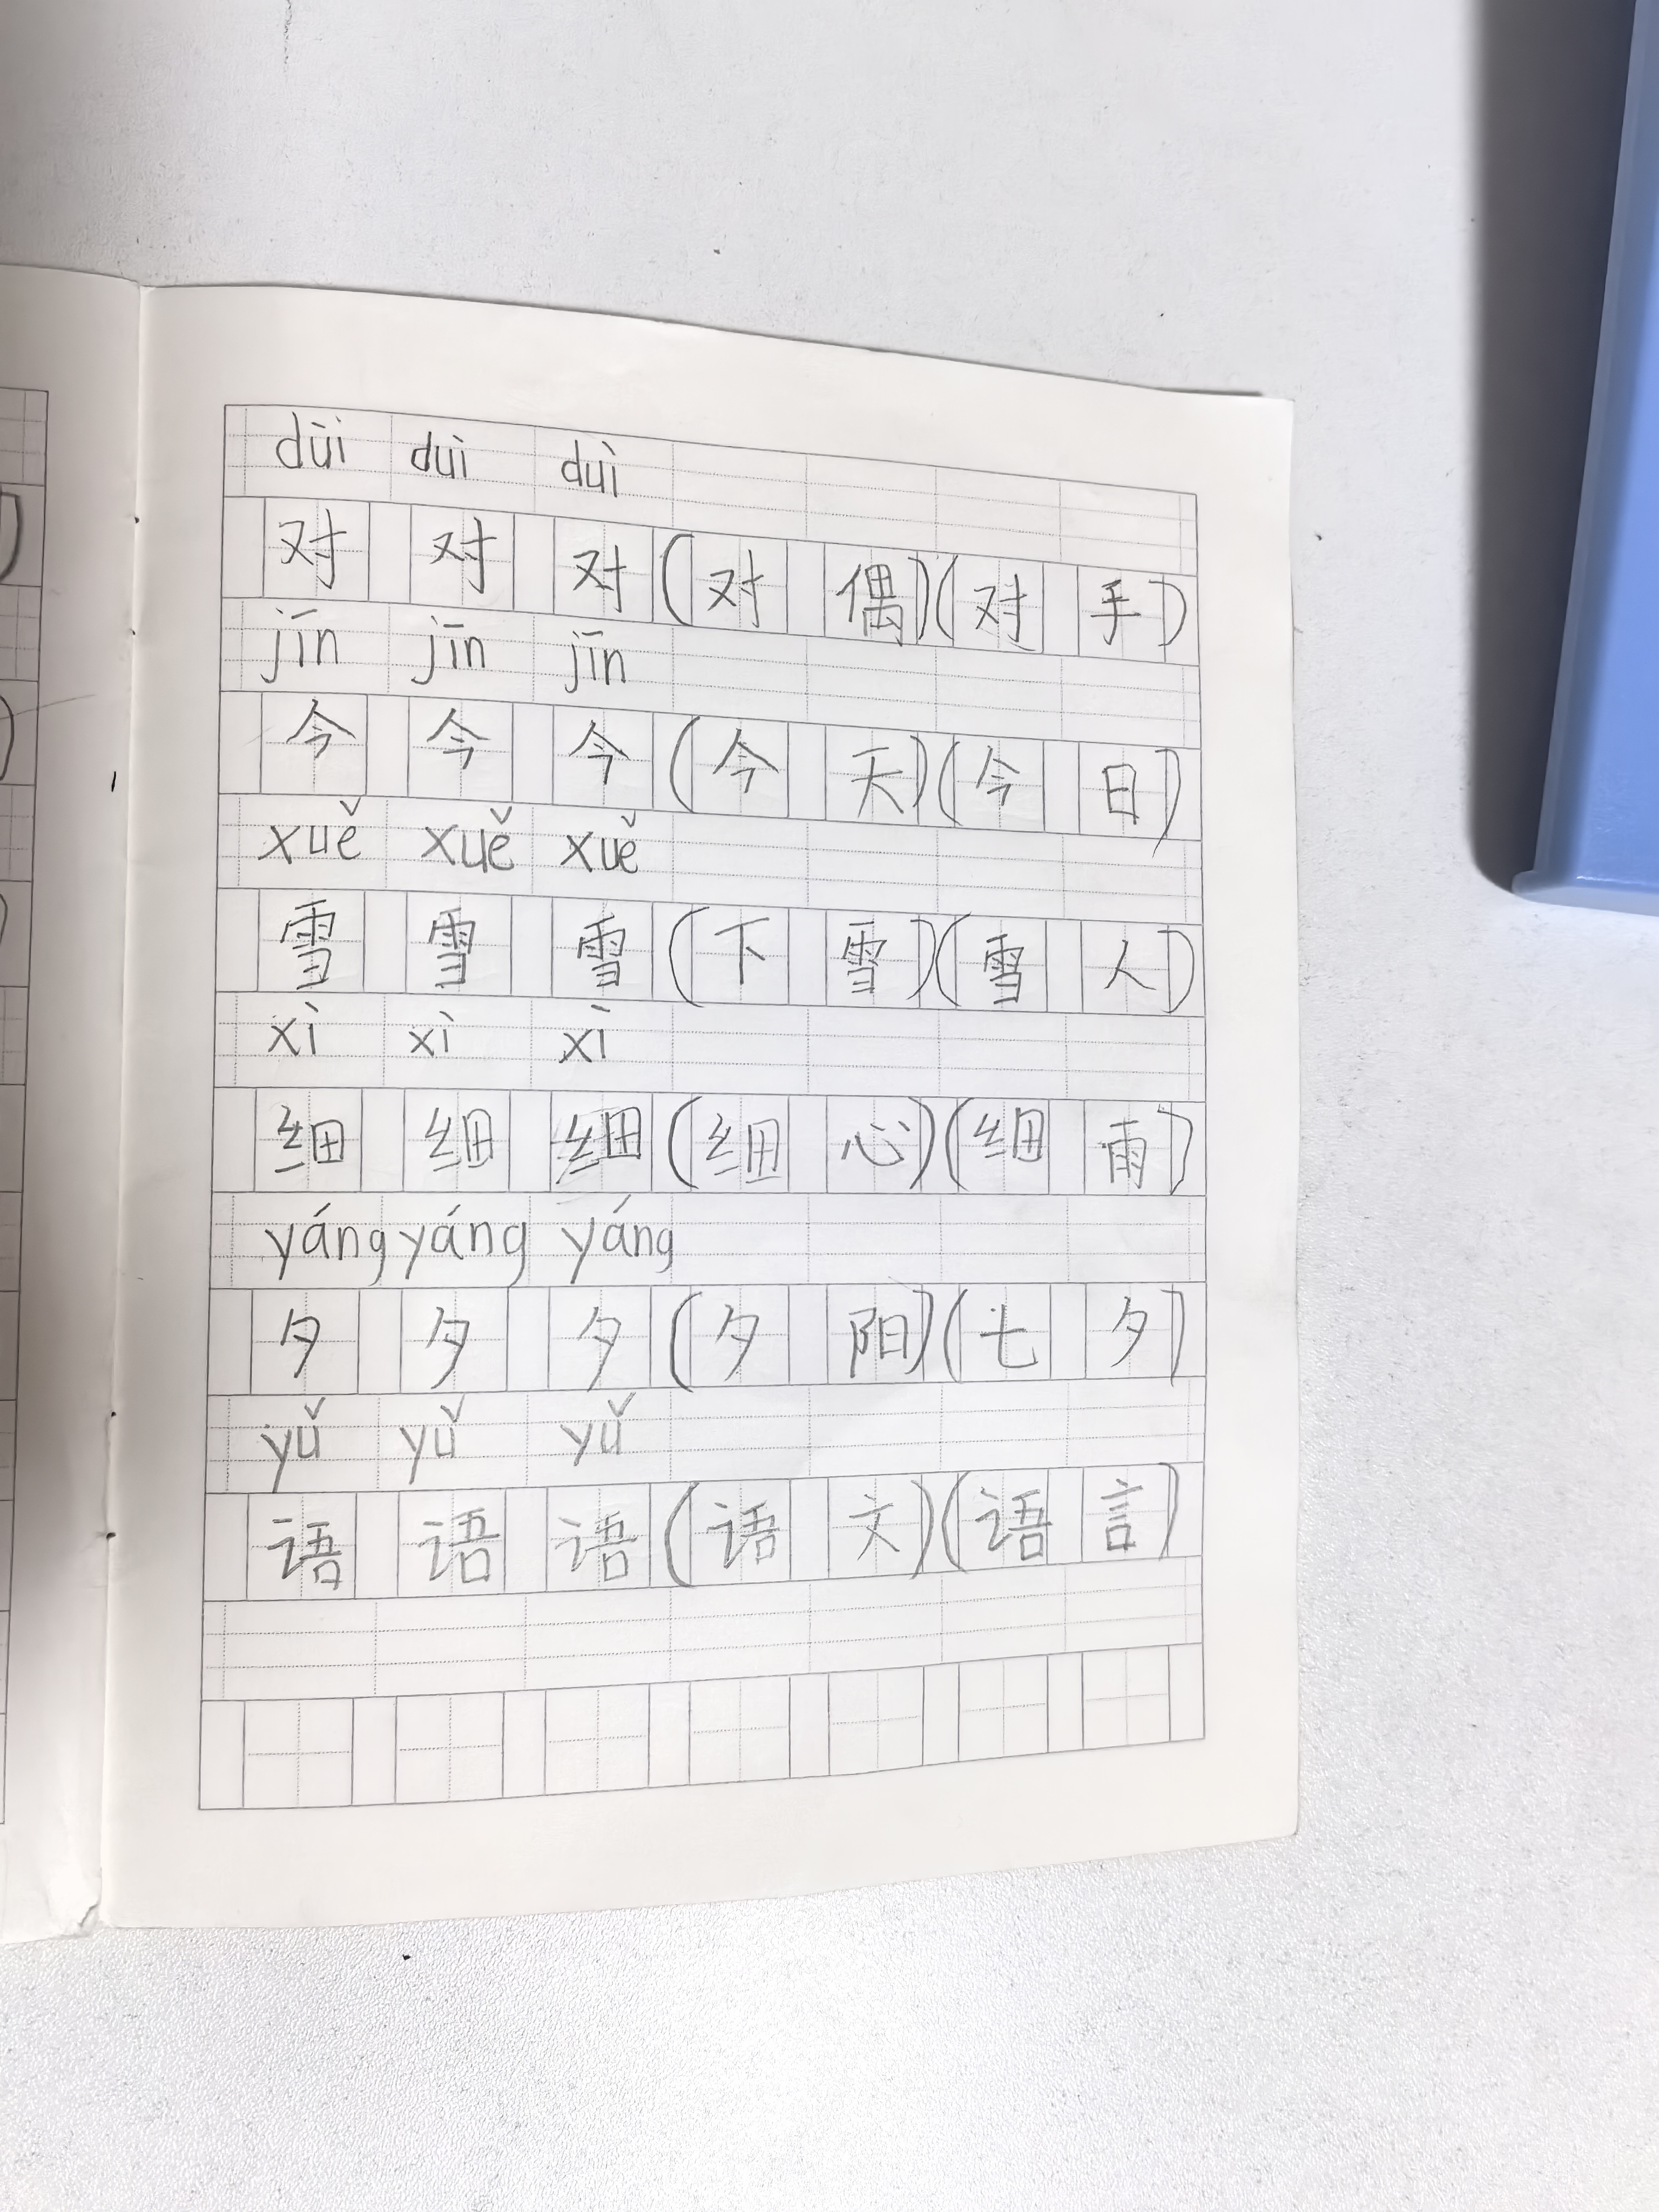 duì duì duì
对 对 对(对 偶)(对 手)
jīn jīn jīn
今 今 今(今 天)(今 日)
xuě xuě xuě
雪 雪 雪(下 雪)(雪 人)
xì xì xì
细 细 细(细 心)(细 雨)
yáng yáng yáng
夕 夕 夕(夕 阳)(七 夕)
yǔ yǔ yǔ
语 语 语(语 文)(语 言)